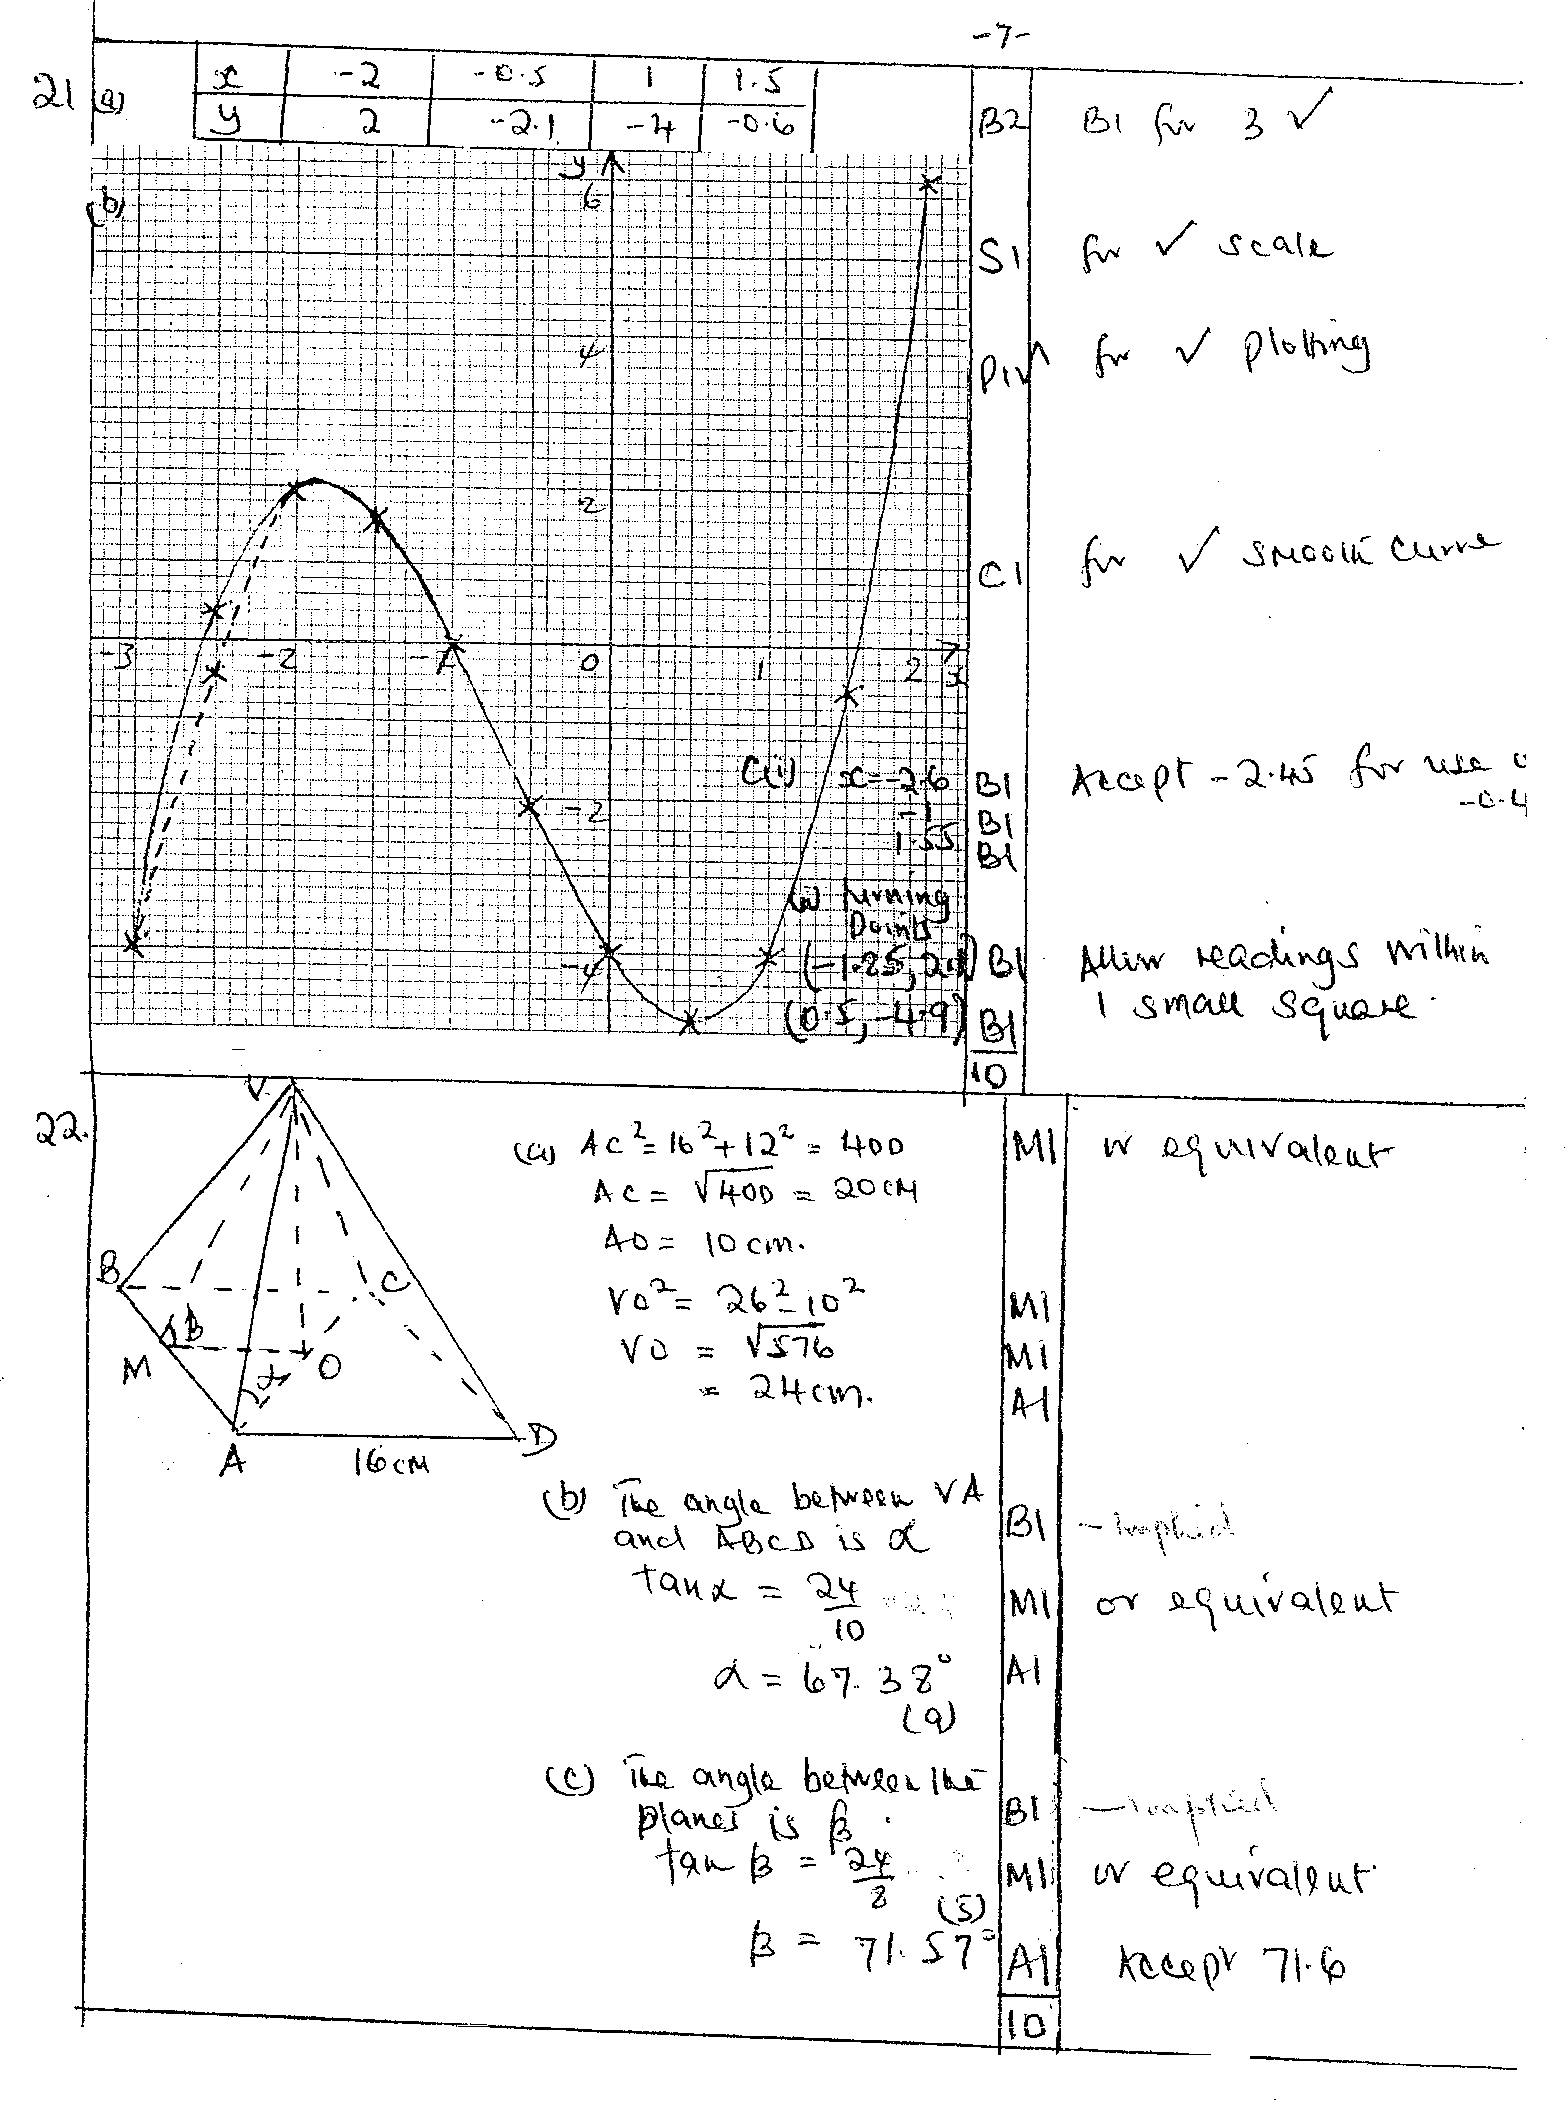 -7-
21 (a) x -2 -0.5 1 1.5
y 2 -2.1 -4 -0.6
B2 B1 for 3 ✓
(b)
y
6
S1 for ✓ scale
4
P1✓ for ✓ plotting
2
C1 for ✓ smooth curve
-3 -2 -1 0 1 2 x
C(i) x = -2.6 B1 Accept -2.45 for use
-0.4
-1 B1
1.55 B1
-2
(ii) Turning
Points
-4
(-1.25, 2.1) B1 Allow readings within
1 small square.
(0.5, -4.9) B1
10
22.
V
B
C
β
M
O
α
A
D
16cm
(a) AC² = 16² + 12² = 400 M1 or equivalent
AC = √400 = 20cm
AO = 10cm.
VO² = 26² - 10² M1
VO = √576 M1
= 24cm. A1
(b) The angle between VA
and ABCD is α B1 - Implied
tan α = 24/10 M1 or equivalent
α = 67.38° A1
(c) The angle between the
planes is β. B1 - Implied
tan β = 24/8 M1 or equivalent
(5)
β = 71.57° A1 Accept 71.6
10